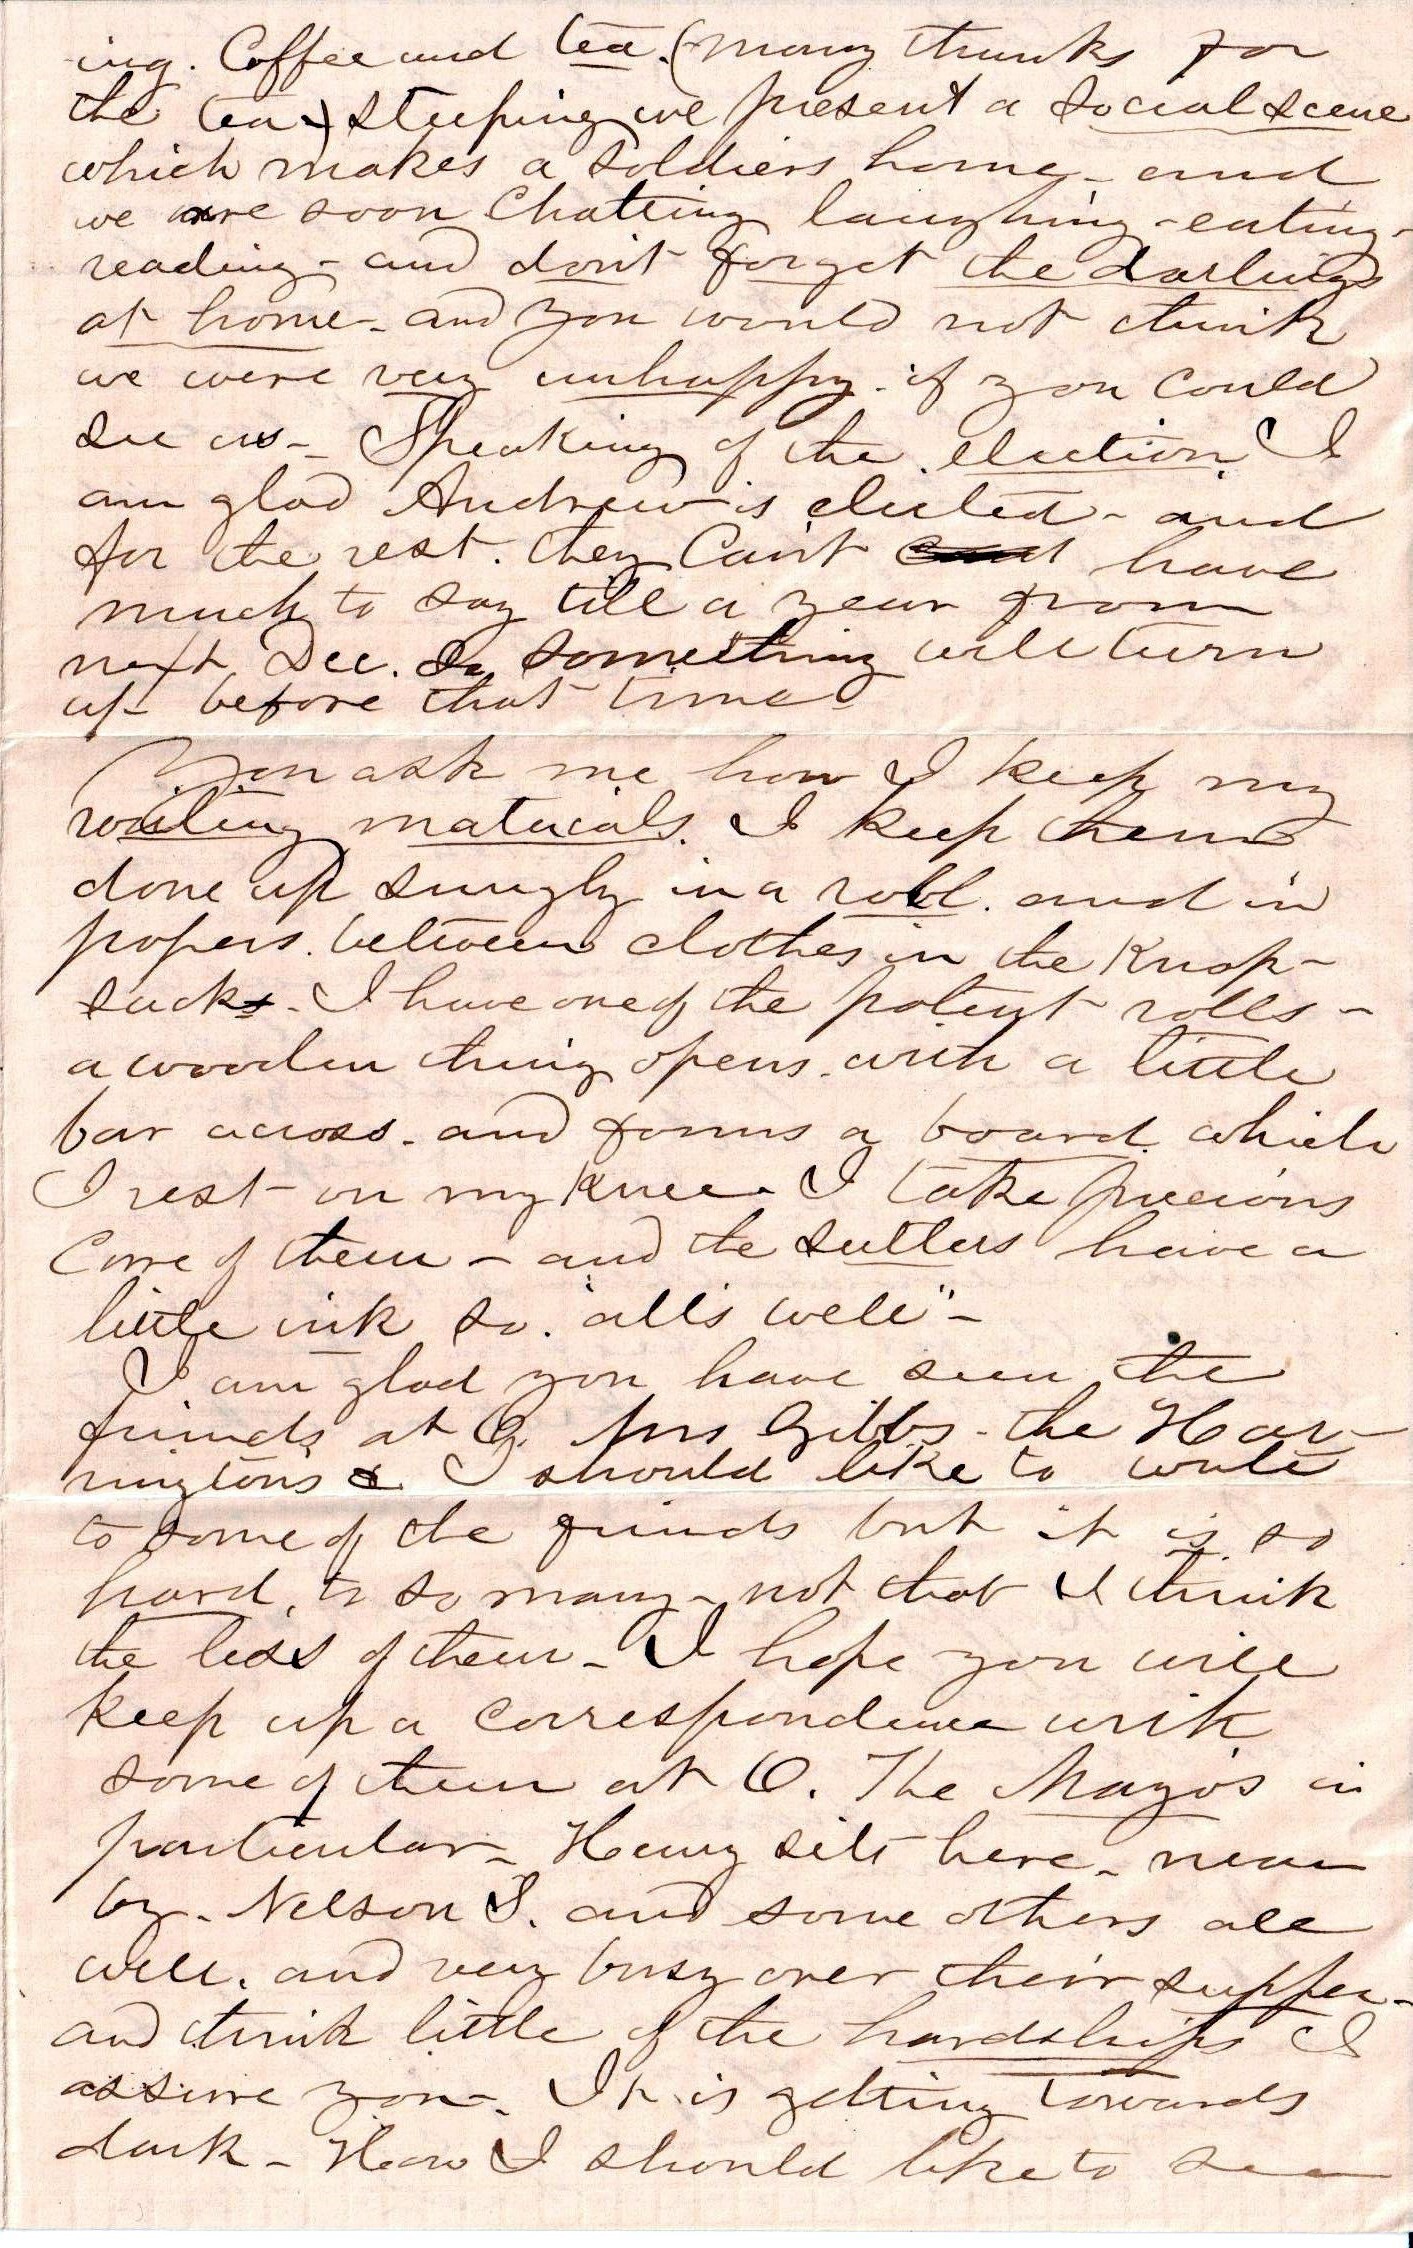 ing. Coffee and tea. (many thanks for
the tea) steeping we present a social scene
which makes a soldiers home - and
we are soon Chatting laughing - eating -
reading - and dont forget the darlings
at home - and you would not think
we were very unhappy - if you could
see us - Speaking of the election I
am glad Andrew is elected - and
for the rest. they Can't have
much to say till a year from
next Dec. So something will turn
up before that time
You ask me how I keep my
writing materials. I keep them
done up snugly in a roll. and in
papers. between clothes in the Knap-
sack. I have one of the patent rolls -
a wooden thing opens. with a little
bar across. and forms a board which
I rest on my knee. I take precious
Care of them - and the sutlers have a
little ink so. "all's well" -
I am glad you have seen the
friends at O. Mrs Gibbs - the Har-
ringtons & I should like to write
to some of the friends but it is so
hard, to so many - not that I think
the less of them - I hope you will
keep up a correspondence with
some of them at O. The Mayo's in
particular - Henry sits here - near
by. Nelson S. and some others all
well. and very busy over their supper -
and think little of the hardships I
assure you. It is getting towards
dark - How I should like to see